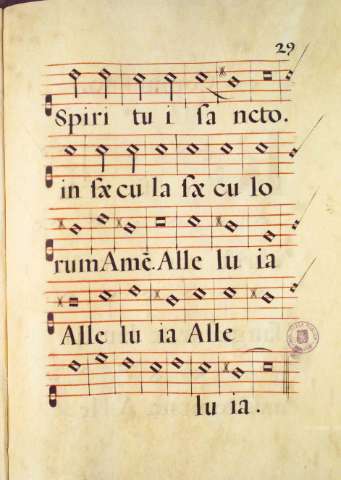 29
Spiri tu i sa ncto.
in sæ cu la sæ cu lo
rum Amē. Alle lu ia
Alle lu ia Alle
lu ia.